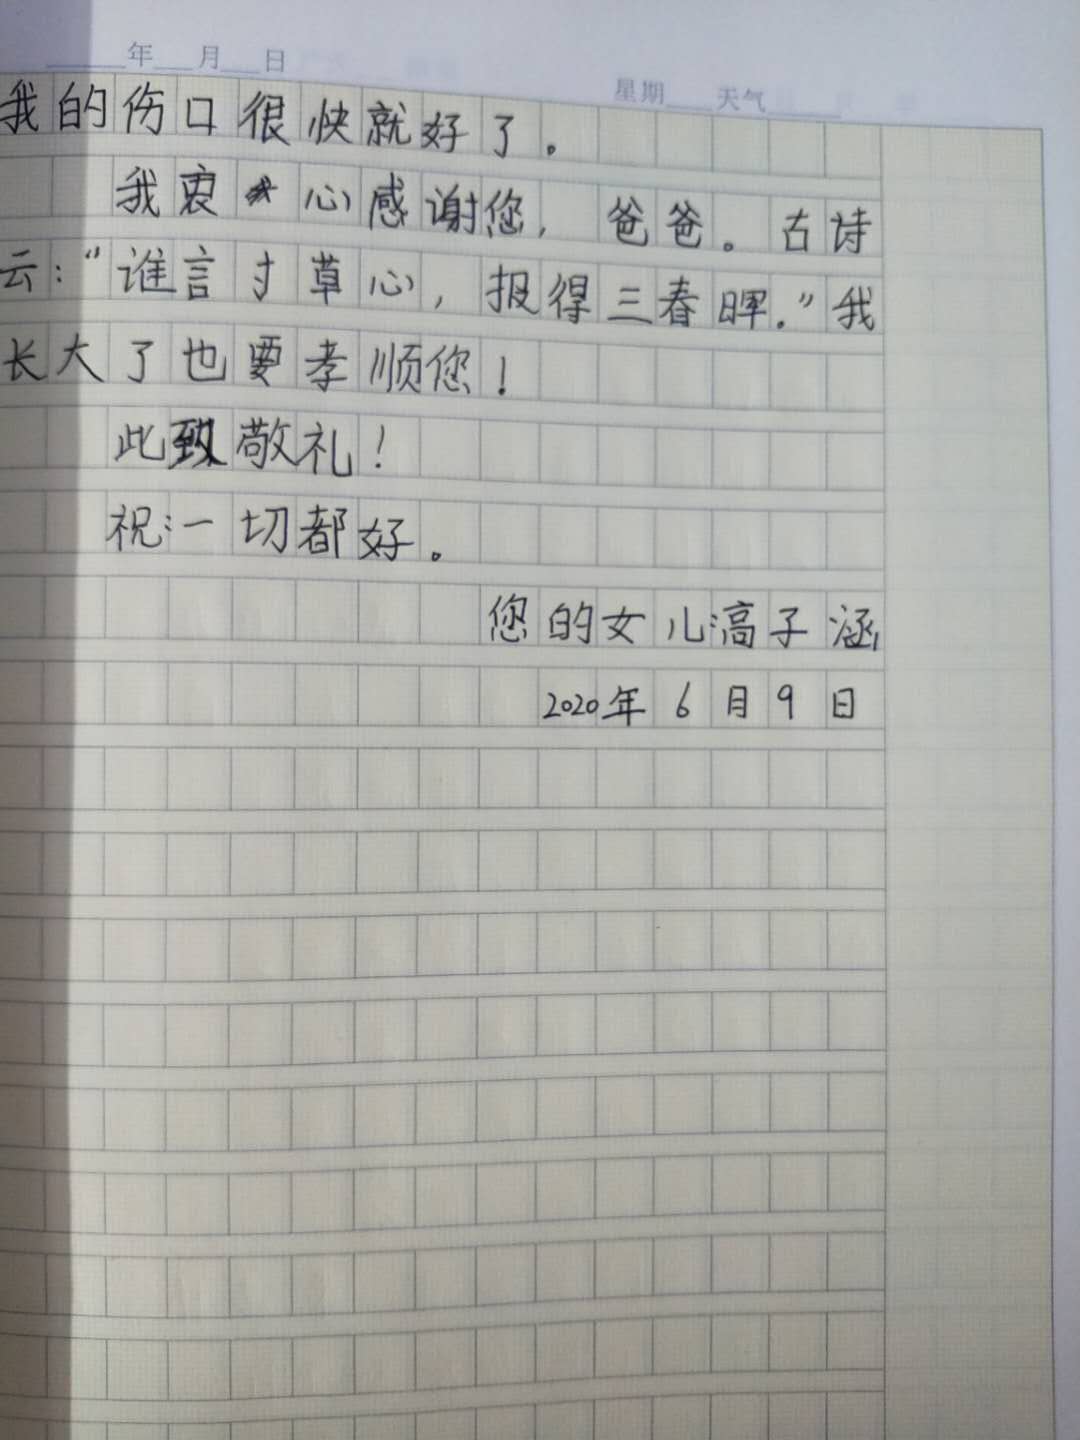 年 月 日
星期 天气
我的伤口很快就好了。
我衷心感谢您，爸爸。古诗
云：“谁言寸草心，报得三春晖.”我
长大了也要孝顺您！
此致敬礼！
祝:一切都好。
您的女儿:滈子涵
2020年6月9日